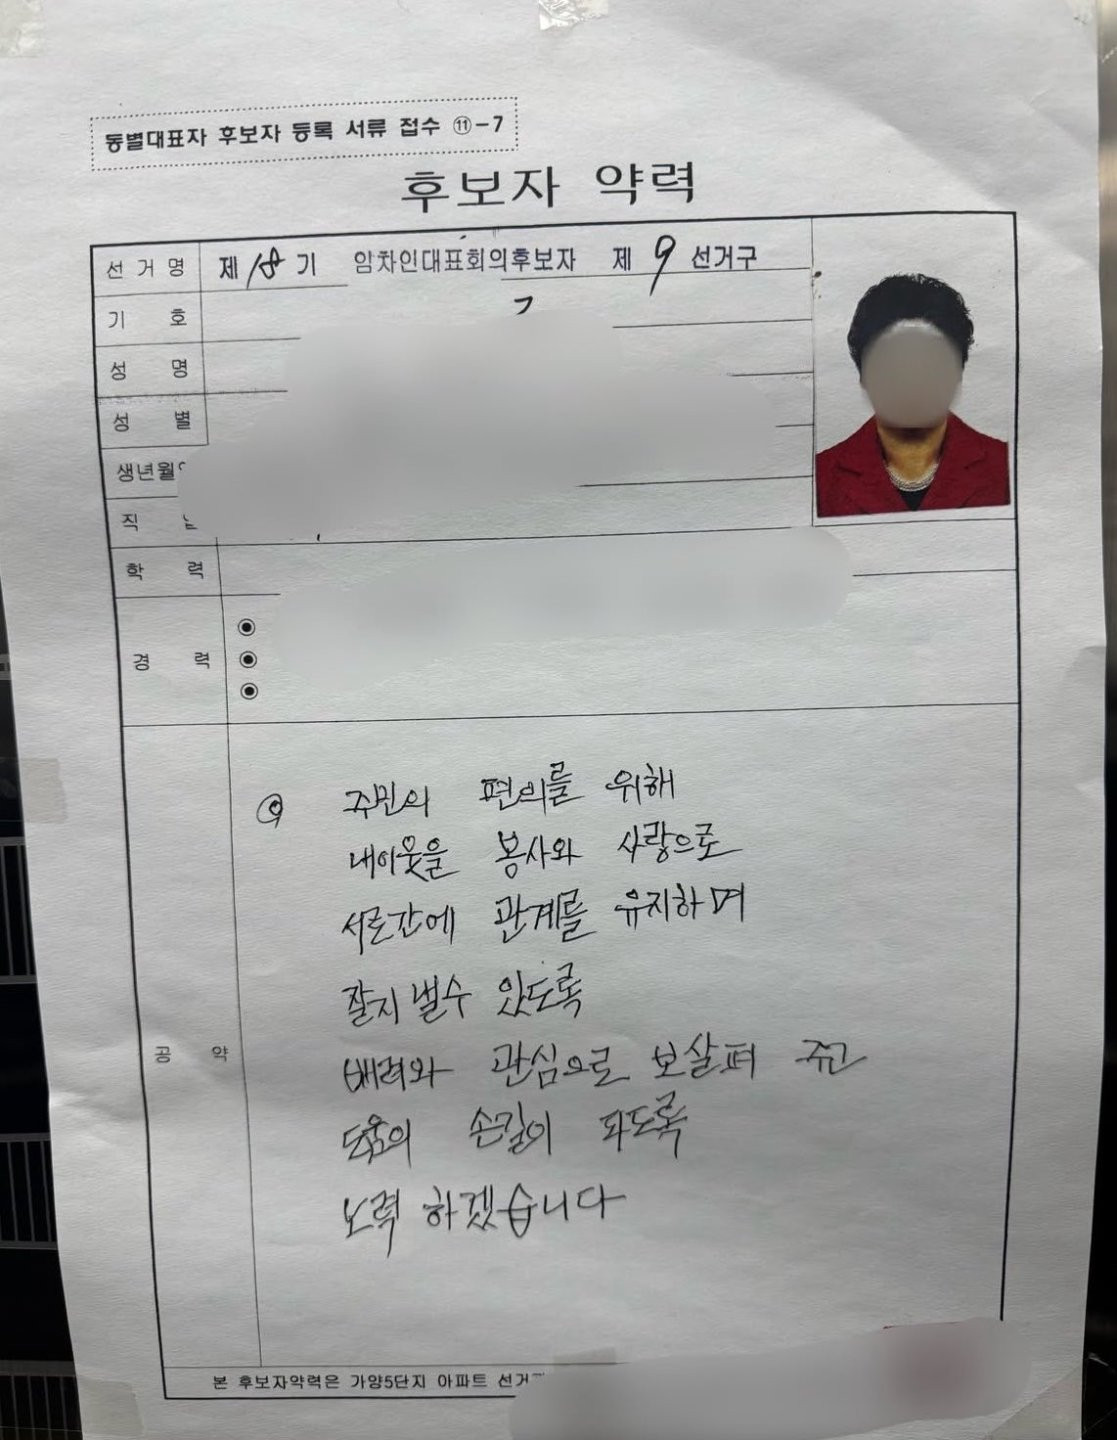 동별대표자 후보자 등록 서류 접수 ⑪-7
후보자 약력
선거명 제 18 기 임차인대표회의후보자 제 9 선거구
기 호
성 명
성 별
생년월
직
학 력
경 력
◉
◉
◉
공 약
주민의 편의를 위해
내이웃을 봉사와 사랑으로
서로간에 관계를 유지하며
잘지낼수 있도록
배려와 관심으로 보살펴 주고
도움의 손길이 되도록
노력 하겠습니다
본 후보자약력은 가양5단지 아파트 선거